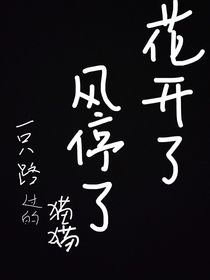 花开了
风停了
一只路过的
猫猫